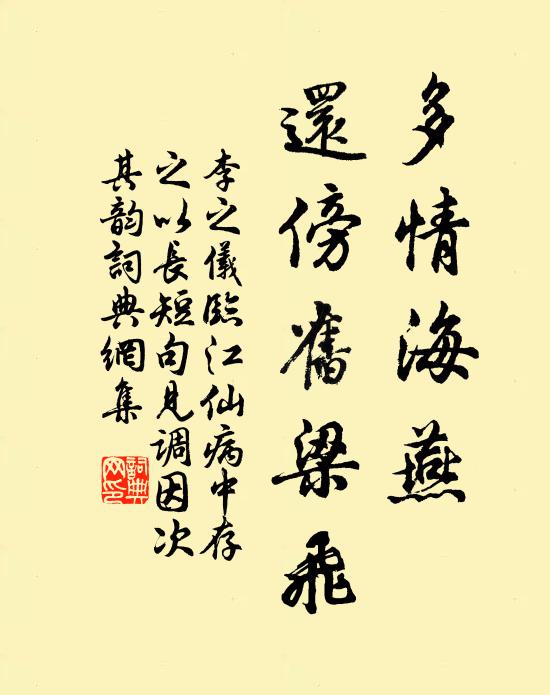 多情海燕
還傍舊梁飛
李之儀臨江仙病中存
之以長短句見調因次
其韵詞典網集
詞典
网印